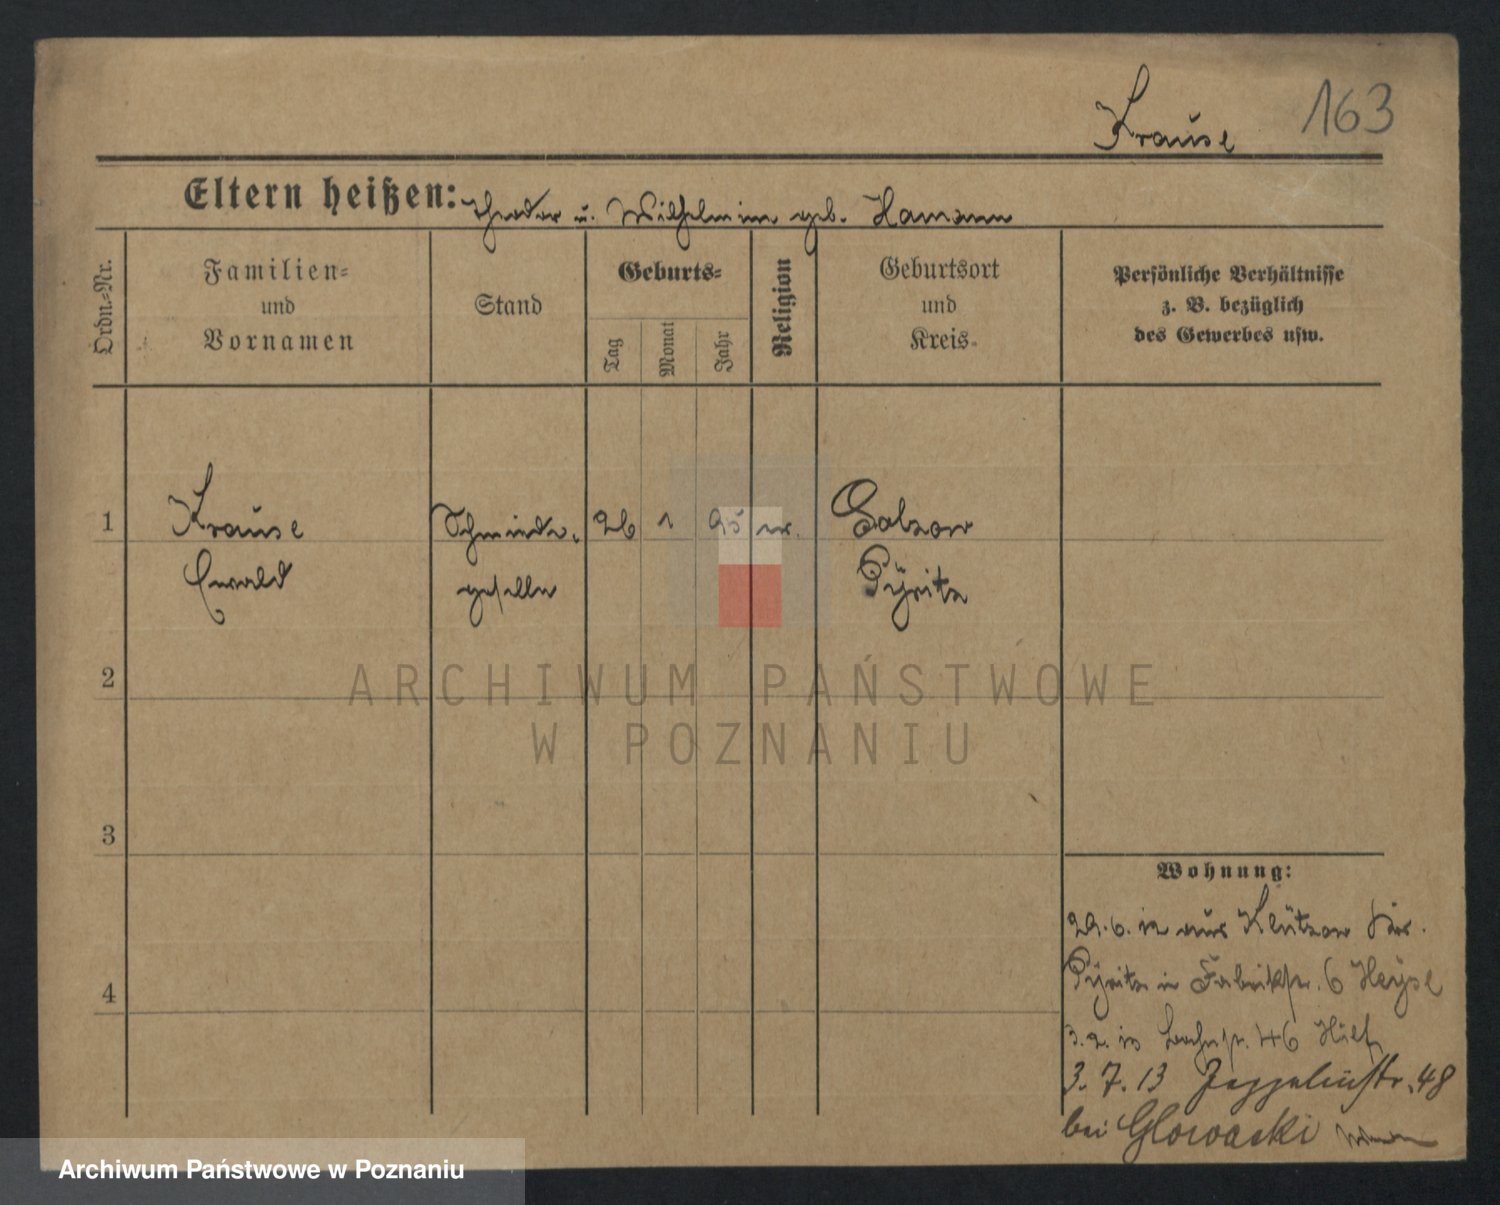 Krause 163
Eltern heißen: Theodor u. Wilhelmine geb. Hamann
Ordn.-Nr.
Familien- und Vornamen
Stand
Geburts-
Tag
Monat
Jahr
Religion
Geburtsort und Kreis.
Persönliche Verhältnisse
z. B. bezüglich
des Gewerbes usw.
1 Krause Schmiede- 26 1 95 ev. Salzow
Ewald geselle Pyritz
2
3
4
Wohnung:
29. 6. 12 aus Klützow Kr.
Pyritz in Fabrikstr. 6 Heyse
3. 2. 13 46
3. 7. 13 Zeppelinstr. 48
bei Glowacki
ARCHIWUM PAŃSTWOWE
W POZNANIU
Archiwum Państwowe w Poznaniu